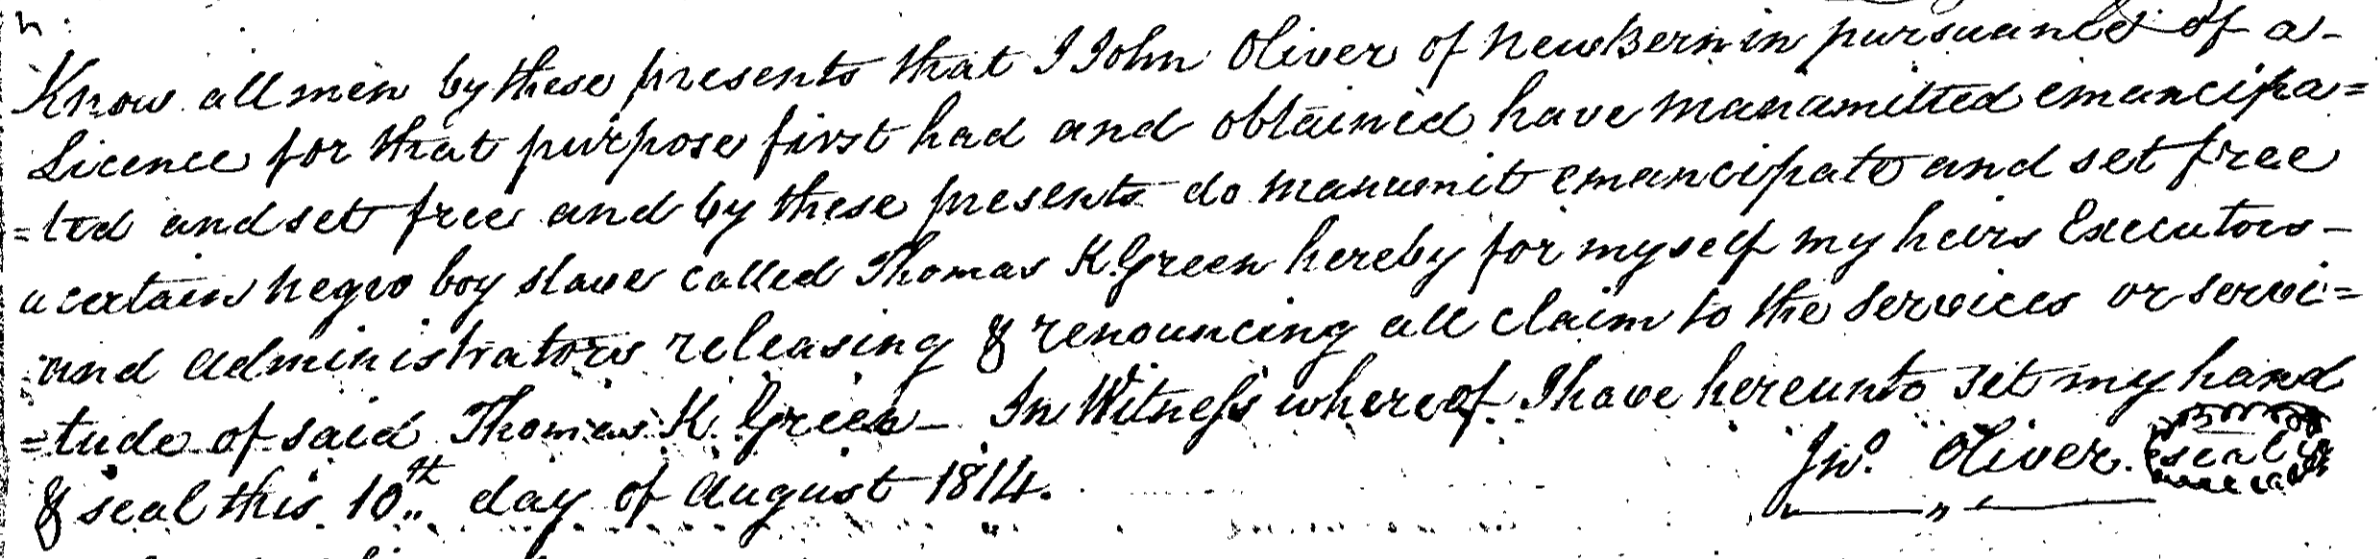 Know all men by these presents that I John Oliver of NewBern in pursuance of a-
Licence for that purpose first had and obtained have manumitted emancipa=
=ted and set free and by these presents do manumit emancipate and set free
a certain negro boy slave called Thomas K. Green hereby for myself my heirs Executors-
and administrators releasing & renouncing all claim to the services or servi=
=tude of said Thomas K. Green- In Witness whereof I have hereunto set my hand
& seal this 10th day of August 1814.
Jno. Oliver. seal